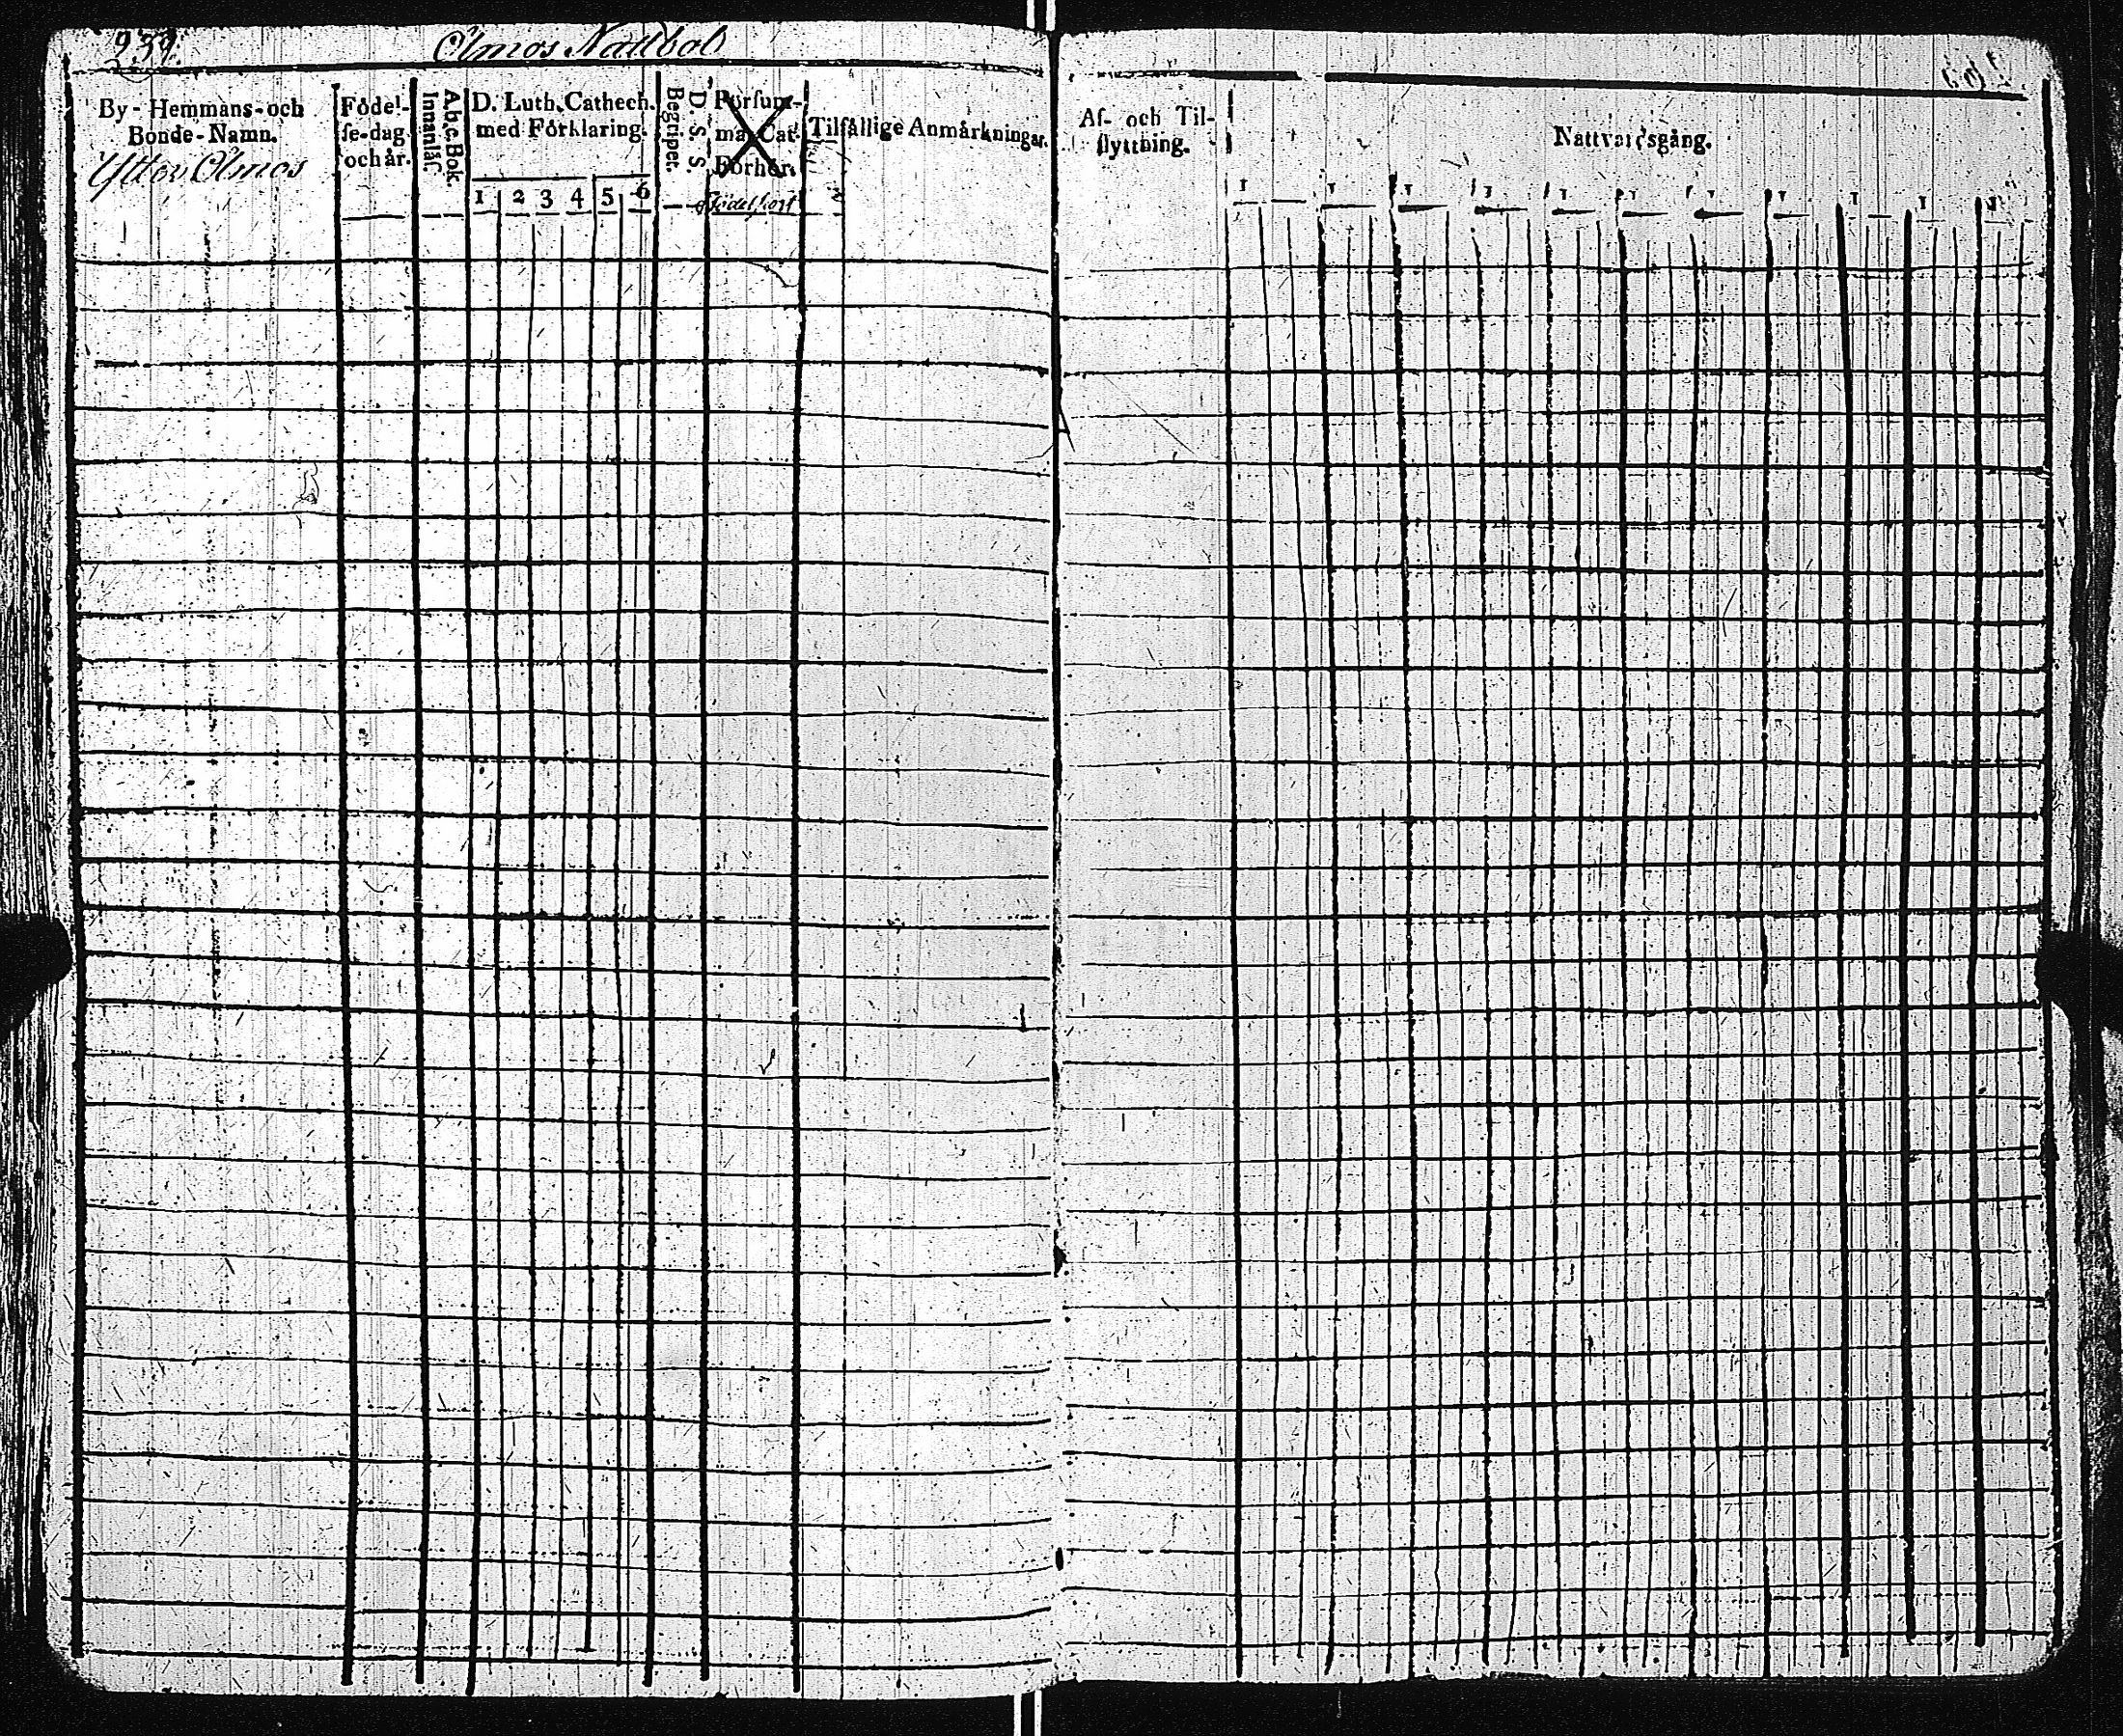 239.
Olmos Nattbol
By-Hemmans-och
Bonde-Namn.
Ytter Olmos
Födel-
se-dag
och år.
A.b.c.Bok.
Innanläs.
D. Luth. Cathech.
med Förklaring.
1 2 3 4 5 6
D. S. S.
Begriper.
Försum-
ma. Cat.
Förhör.
Födelseort
Tilfällige Anmärkningar.
Af- och Til-
flyttning.
Nattvardsgång.